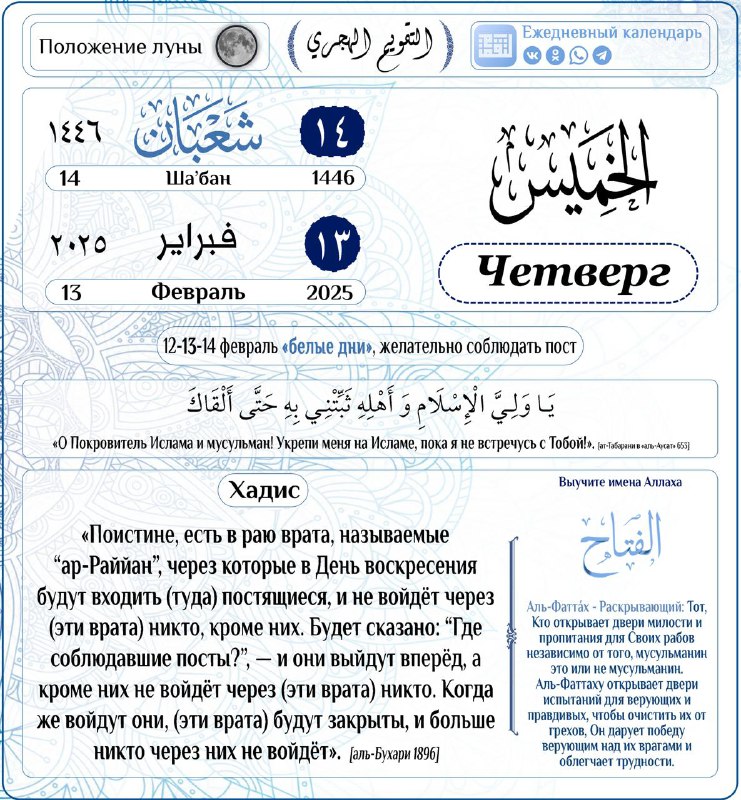 Положение луны
التقويم الهجري
Ежедневный календарь
١٤٤٦
شَعْبَان
١٤
14 Ша’бан 1446
٢٠٢٥
فبراير
١٣
13 Февраль 2025
الخَمِيس
Четверг
12-13-14 февраль «белые дни», желательно соблюдать пост
يَا وَلِيَّ الْإِسْلَامِ وَ أَهْلِهِ ثَبِّتْنِي بِهِ حَتَّى أَلْقَاكَ
«О Покровитель Ислама и мусульман! Укрепи меня на Исламе, пока я не встречусь с Тобой!». [ат-Табарани в «аль-Аусат» 653]
Хадис
«Поистине, есть в раю врата, называемые
“ар-Раййан”, через которые в День воскресения
будут входить (туда) постящиеся, и не войдёт через
(эти врата) никто, кроме них. Будет сказано: “Где
соблюдавшие посты?”, — и они выйдут вперёд, а
кроме них не войдёт через (эти врата) никто. Когда
же войдут они, (эти врата) будут закрыты, и больше
никто через них не войдёт». [аль-Бухари 1896]
Выучите имена Аллаха
الفَتَاح
Аль-Фатта́х - Раскрывающий: Тот,
Кто открывает двери милости и
пропитания для Своих рабов
независимо от того, мусульманин
это или не мусульманин.
Аль-Фаттаху открывает двери
испытаний для верующих и
правдивых, чтобы очистить их от
грехов, Он дарует победу
верующим над их врагами и
облегчает трудности.